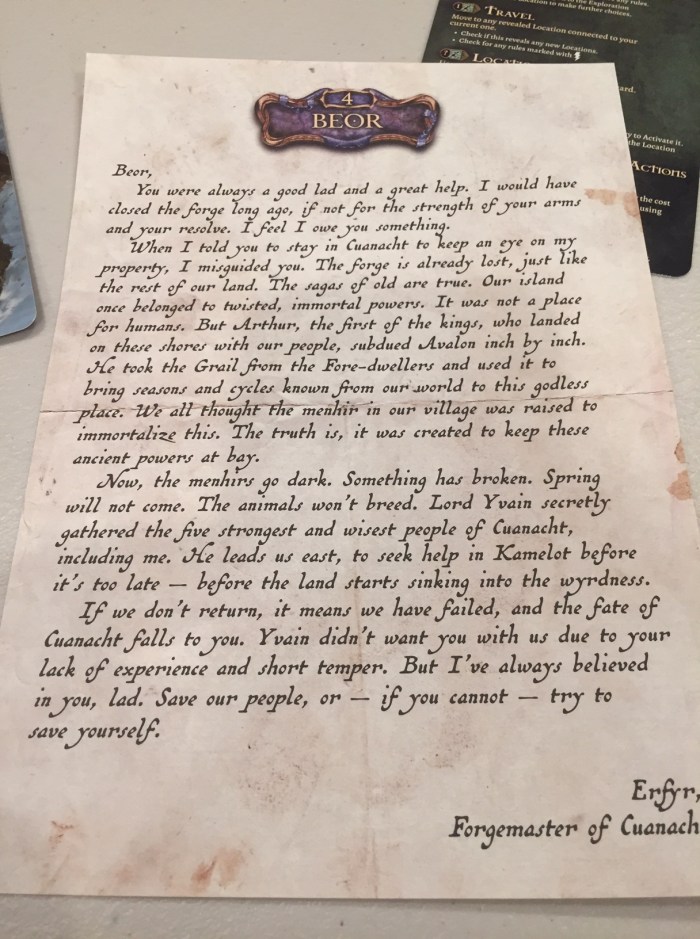 4
BEOR
Beor,
You were always a good lad and a great help. I would have
closed the forge long ago, if not for the strength of your arms
and your resolve. I feel I owe you something.
When I told you to stay in Cuanacht to keep an eye on my
property, I misguided you. The forge is already lost, just like
the rest of our land. The sagas of old are true. Our island
once belonged to twisted, immortal powers. It was not a place
for humans. But Arthur, the first of the kings, who landed
on these shores with our people, subdued Avalon inch by inch.
He took the Grail from the Fore-dwellers and used it to
bring seasons and cycles known from our world to this godless
place. We all thought the menhir in our village was raised to
immortalize this. The truth is, it was created to keep these
ancient powers at bay.
Now, the menhirs go dark. Something has broken. Spring
will not come. The animals won't breed. Lord Yvain secretly
gathered the five strongest and wisest people of Cuanacht,
including me. He leads us east, to seek help in Kamelot before
it's too late — before the land starts sinking into the wyrdness.
If we don't return, it means we have failed, and the fate of
Cuanacht falls to you. Yvain didn't want you with us due to your
lack of experience and short temper. But I've always believed
in you, lad. Save our people, or — if you cannot — try to
save yourself.
Erfyr,
Forgemaster of Cuanach
rules.
the Exploration
to make further choices.
TRAVEL
Move to any revealed Location connected to your
current one.
• Check if this reveals any new Locations.
• Check for any rules marked with
ard.
to Activate it.
the Location
ACTIONS
the cost
using